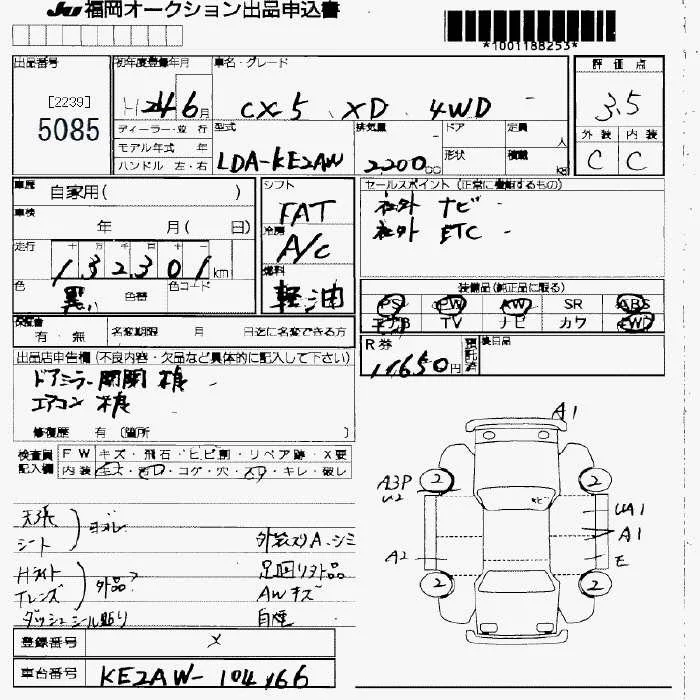 JU 福岡オークション出品申込書
*1001188253*
出品番号
[2239]
5085
初年度登録年月
H 24 6月
車名・グレード
CX5 XD 4WD
評価点
3.5
外装 内装
C C
ディーラー・並行
モデル年式 年
ハンドル 左・右
型式
LDA-KE2AW
排気量
2,200cc
ドア
形状
定員
人
積載
kg
車歴
自家用( )
車検
年 月( 日)
走行
十 万 千 百 十 一
1 3 2 3 0 1 km
色
黒
色替
色コード
シフト
FAT
冷房
A/C
燃料
軽油
セールスポイント (正常に機能するもの)
社外 ナビ
社外 ETC
装備品(純正品に限る)
PS PW AW SR ABS
エアB TV ナビ カワ 4WD
保証書
有・無
名変期限 月 日迄に名変できる方
R券
11,650円
預託済
後日品
出品店申告欄 (不良内容・欠品など具体的に記入して下さい)
ドアミラー開閉不良
エアコン 不良
修復歴 有 〔箇所 〕
検査員記入欄
FW キズ・飛石・ヒビ割・リペア跡・X要
内装 キズ・汚レ・コゲ・穴・スレ・キレ・破レ
天張
シート
ヨゴレ
外装スリA、シミ
Hライト
レンズ
外品?
足回リ外品
AWキズ
ダッシュシール貼り
自煙
A1
A3P
U2
A2
UA1
A1
E
ナビ
2
2
2
2
登録番号
メ
車台番号
KE2AW-104166